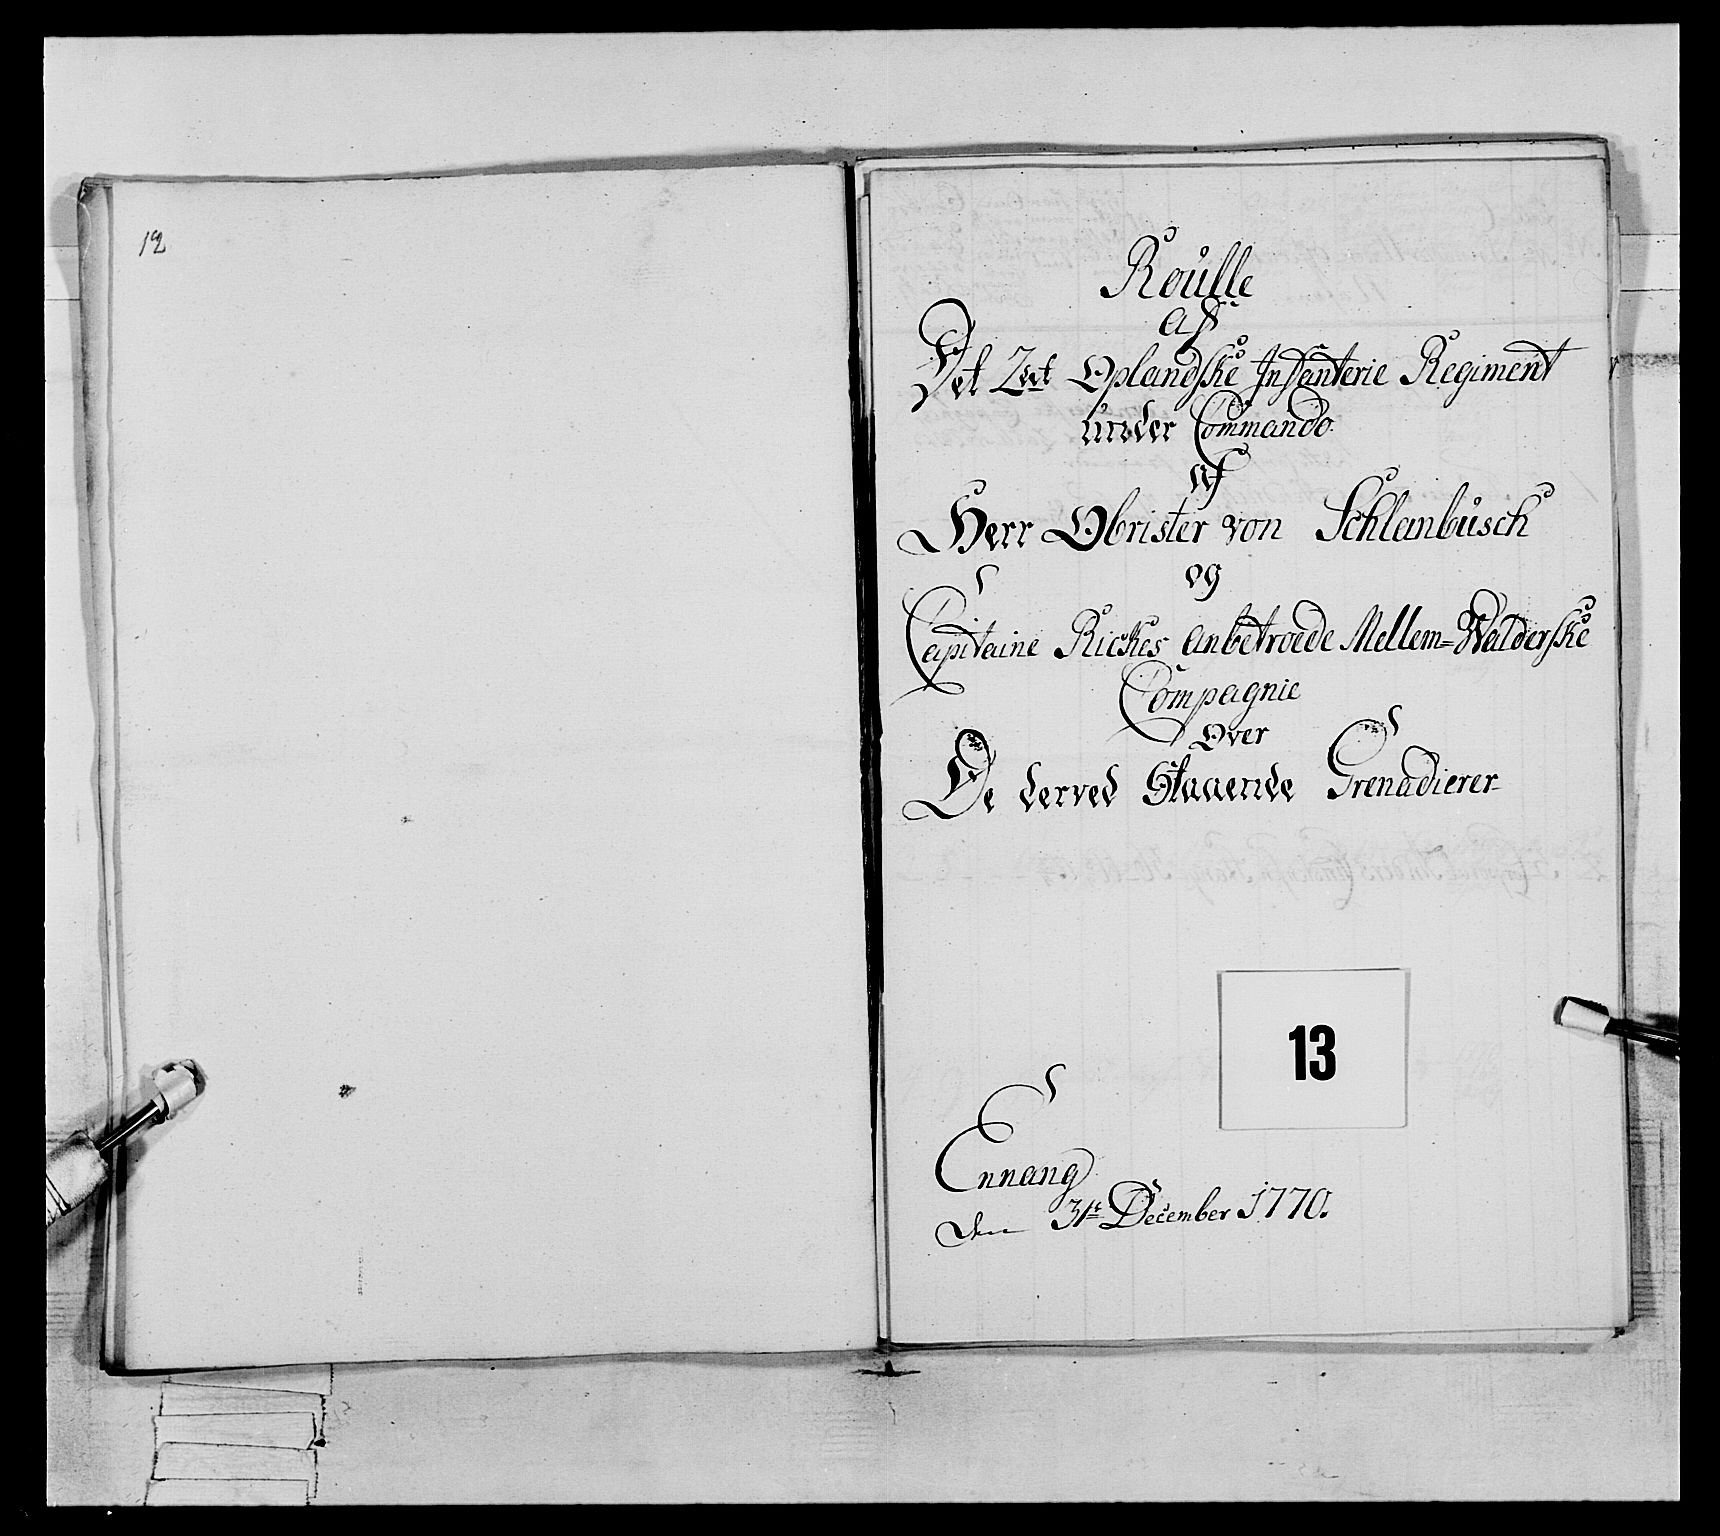 12
Roulle
af
Det 2det Oplandske Infanterie Regiment
under Commando
af
Herr Obrister von Schlanbusch
og
Capitaine Rickes anbetroede Mellem=Walderske
Compagnie
Over
De derved Staaende Grenadierer
13
Ennang
den 31te December 1770.